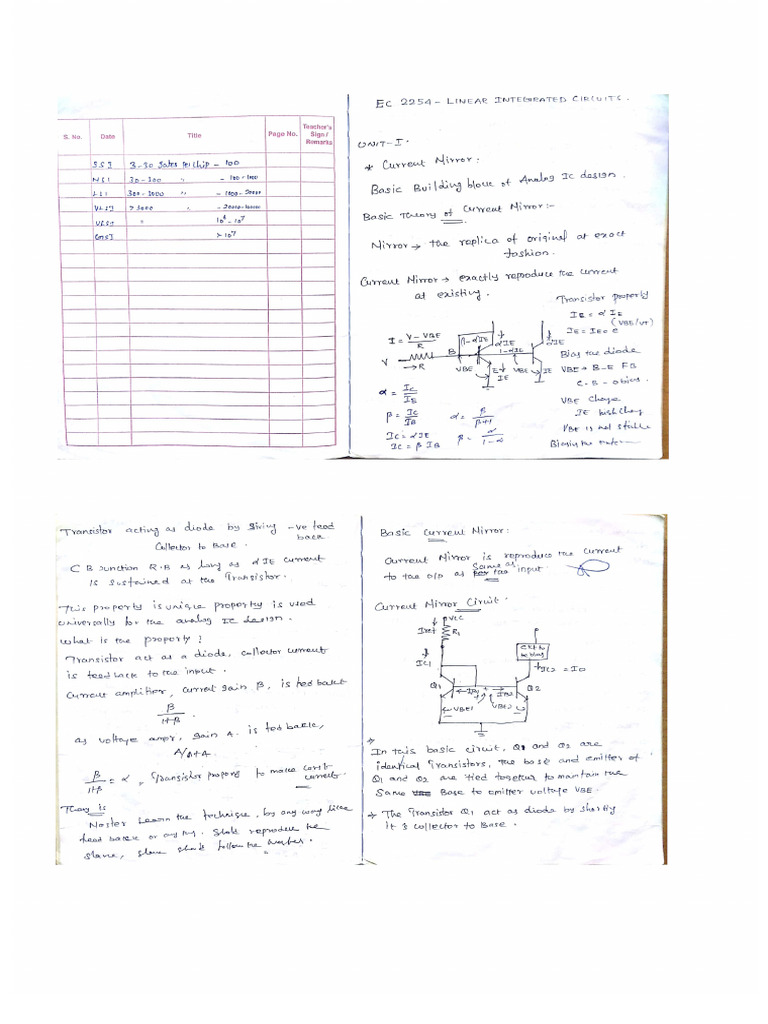 S. No. Date Title Page No. Teacher's Sign / Remarks
SSI 3-30 gates per chip - 100
MSI 30-300 " - 100-1000
LSI 300-3000 " - 1000-20000
VLSI > 3000 " - 20000-
VLSI " 10⁶ - 10⁷
GSI > 10⁷
EC 2254 - LINEAR INTEGRATED CIRCUITS.
UNIT-I.
* Current Mirror:
Basic Building block of Analog IC design.
Basic Theory of Current Mirror:-
Mirror → the replica of original at exact
fashion.
Current Mirror → exactly reproduce the current
at existing.
Transistor property
IE = IE0 e (VBE/VT)
I = V - VBE / R
αIE
αIE
V
→ R
B
1-αIE
VBE
E
IE
VBE
IE
Bias the diode
VBE → B-E FB
C-B - 0 bias.
VBE Change
VBE is not stable
α = IC / IB
β = IC / IB
α = β / β+1
IC = αIE
IC = β IB
β = α / 1-α
Transistor acting as diode by giving -ve feed
back
Collector to Base.
C B Junction R.B as long as αIE current
is sustained at the Transistor.
This property is unique property is used
universally for the analog IC design.
What is the property?
Transistor act as a diode, collector current
is feedback to the input.
Current amplifier, current gain β, is fed back
β / 1+β
as voltage ampr, gain A is fed back,
A/1+A.
β / 1+β = α, Transistor property to make const
current.
Theory is
Master Learn the technique, by any way like
feed back or any . reproduce the
slave, slave should follow the Master.
Basic Current Mirror:
Current Mirror is reproduce the current
same as
to the O/P as for the input.
Current Mirror Circuit.
VCC
Iref R1
IC1
IC2 = I0
Q1 IB1 IB2 Q2
VBE1 VBE2
In this basic circuit, Q1 and Q2 are
identical Transistors, the base and emitter of
Q1 and Q2 are tied together to maintain the
Same VBE Base to emitter voltage VBE.
→ The Transistor Q1 act as diode by shorting
it's collector to Base.